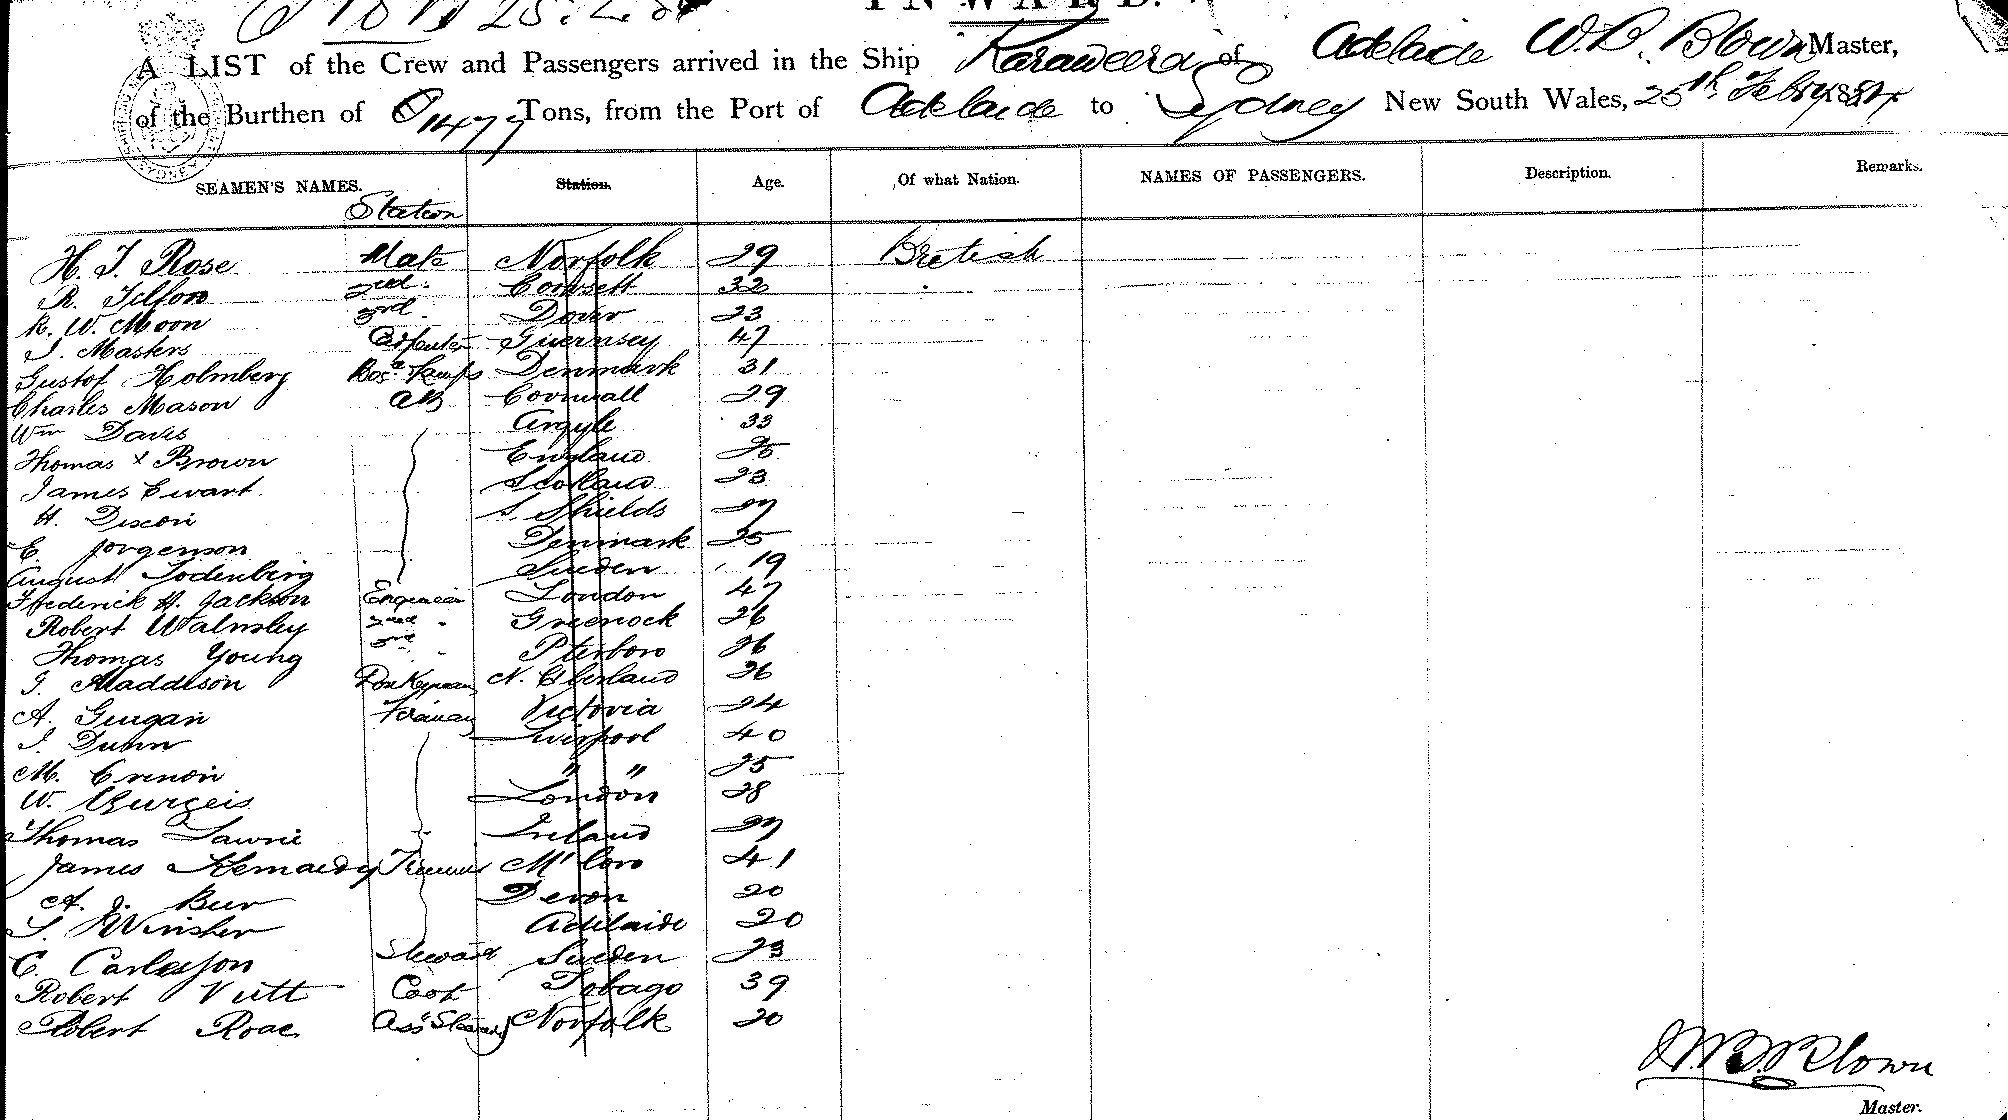 INWARD.
A LIST of the Crew and Passengers arrived in the Ship Karaweera of Adelaide W.B. Blown Master,
of the Burthen of 1477 Tons, from the Port of Adelaide to Sydney New South Wales, 25th Febry 188
SEAMEN'S NAMES. Station Station. Age. Of what Nation. NAMES OF PASSENGERS. Description. Remarks.
H. J. Rose Mate Norfolk 29 British
R. Tilfon 2nd Consett 32
R. W. Moon 3rd Dover 23
J. Masters Carpenter Guernsey 47
Gustof Holmberg Denmark 31
Charles Mason AB Cornwall 29
Wm Davis Argyle 33
Thomas x Brown England
James Ewart Scotland 23
H. S. Shields 27
E. Jorgenson Denmark 25
August Sodenberg Sueden 19
Frederick H. Jackson Engineer London 47
Robert Walmsley 2nd " Greenock 26
Thomas Young 3rd " Pterboro 26
J. Maddison Donkeyman 26
A. Gurgan Fireman Victoria 24
J. Dunn Liverpool 40
M. " " 25
W. Burgeis London 28
Thomas Lawrie Ireland 27
James Kennedy 41
A. J. Devon 20
Adelaide 20
C. Steward Sueden 23
Robert Cook Tobago 39
Robert Norfolk 20
W.B. Blown
Master.